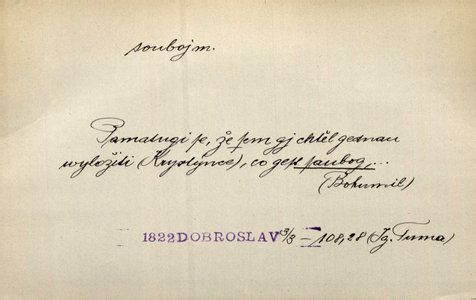 souboj m.
Pamatugi se, že sem gj chtěl gednau
wyložiti (Krystýnce), co gest saubog,...
(Bohumil)
1822 DOBROSLAV 3/3 – 108,28 (Jg. Tuma)